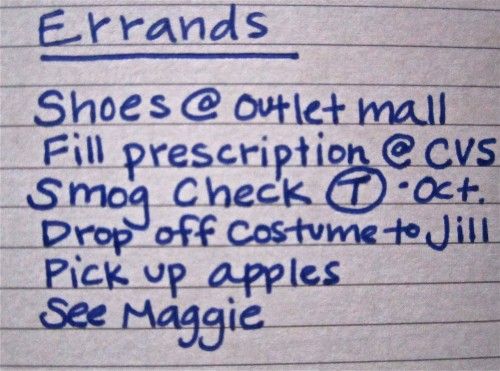 Errands
Shoes @ outlet mall
Fill prescription @ CVS
Smog Check Ⓣ · Oct.
Drop off Costume to Jill
Pick up apples
See Maggie